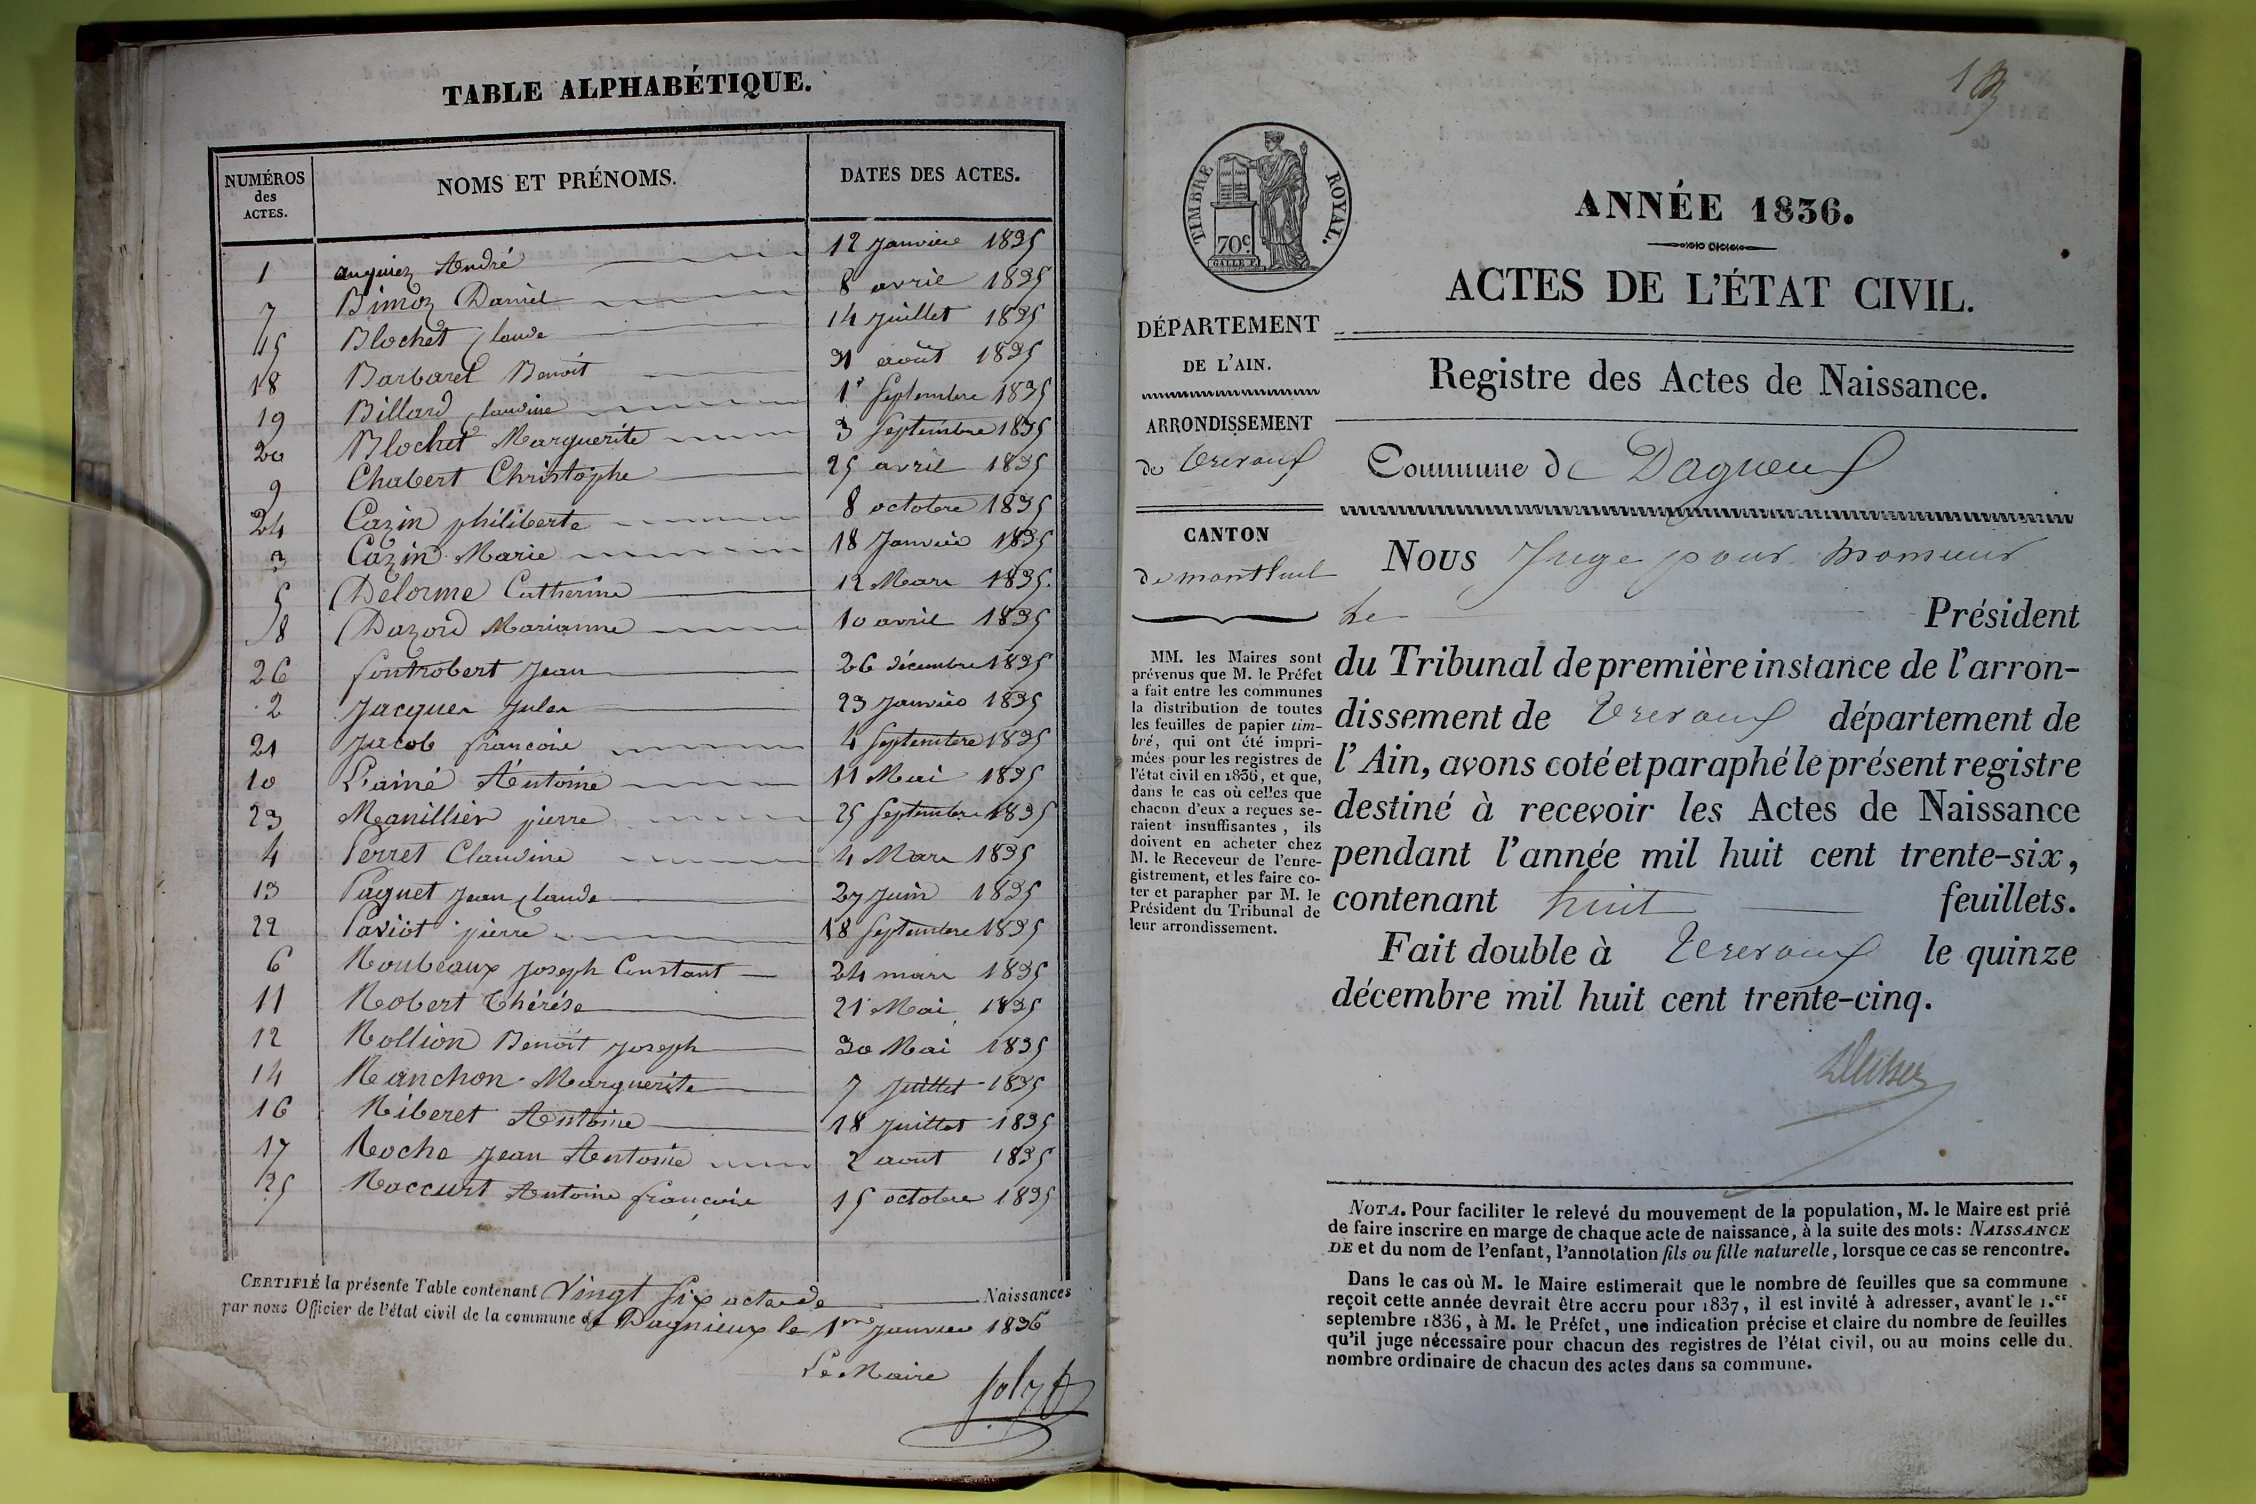 TABLE ALPHABÉTIQUE.
NUMÉROS des ACTES. NOMS ET PRÉNOMS. DATES DES ACTES.
1 André 12 Janvier 1835
7 Bimoz Daniel 8 avril 1835
15 Blochet Claude 14 Juillet 1835
18 Barbaret Benoit 31 août 1835
19 Billard Claudine 1r Septembre 1835
20 Blochet Marguerite 3 Septembre 1835
9 Chabert Christophe 25 avril 1835
24 Cazin philiberte 8 octobre 1835
3 Cazin Marie 18 Janvier 1835
5 Delorme Catherine 12 Mars 1835.
8 Dazord Marianne 10 avril 1835
26 fontrobert Jean 26 décembre 1835
2 Jacques Jules 23 Janvier 1835
21 Jacob françois 4 Septembre 1835
10 Lainé Antoine 11 Mai 1835
23 Manillier pierre 25 Septembre 1835
4 Perret Claudine 4 Mars 1835
13 Paquet Jean Claude 27 Juin 1835
22 Paviot pierre 18 Septembre 1835
6 Roubeaux Joseph Constant 24 mars 1835
11 Robert Thérése 21 Mai 1835
12 Rollion Benoit Joseph 30 Mai 1835
14 Ranchon Marguerite 7 Juillet 1835
16 Riberet Antoine 18 Juillet 1835
17 Roche Jean Antoine 2 aout 1835
25 Raccurt Antoine françois 15 octobre 1835
CERTIFIÉ la présente Table contenant Vingt Six actes de Naissances
par nous Officier de l'état civil de la commune de Dagnieux le 1er Janvier 1836
Le Maire
ANNÉE 1836.
TIMBRE ROYAL.
70c.
GALLE F.
ACTES DE L'ÉTAT CIVIL.
DÉPARTEMENT
DE L'AIN.
Registre des Actes de Naissance.
ARRONDISSEMENT
de Trevoux
Commune de Dagneux
CANTON
de montluel
MM. les Maires sont
prévenus que M. le Préfet
a fait entre les communes
la distribution de toutes
les feuilles de papier tim-
bré, qui ont été impri-
mées pour les registres de
l'état civil en 1836, et que,
dans le cas où celles que
chacun d'eux a reçues se-
raient insuffisantes, ils
doivent en acheter chez
M. le Receveur de l'enre-
gistrement, et les faire co-
ter et parapher par M. le
Président du Tribunal de
leur arrondissement.
NOUS Juge pour monsieur
le Président
du Tribunal de première instance de l'arron-
dissement de Trevoux département de
l'Ain, avons coté et paraphé le présent registre
destiné à recevoir les Actes de Naissance
pendant l'année mil huit cent trente-six,
contenant huit feuillets.
Fait double à Trevoux le quinze
décembre mil huit cent trente-cinq.
NOTA. Pour faciliter le relevé du mouvement de la population, M. le Maire est prié
de faire inscrire en marge de chaque acte de naissance, à la suite des mots: NAISSANCE
DE et du nom de l'enfant, l'annotation fils ou fille naturelle, lorsque ce cas se rencontre.
Dans le cas où M. le Maire estimerait que le nombre de feuilles que sa commune
reçoit cette année devrait être accru pour 1837, il est invité à adresser, avant le 1.er
septembre 1836, à M. le Préfet, une indication précise et claire du nombre de feuilles
qu'il juge nécessaire pour chacun des registres de l'état civil, ou au moins celle du
nombre ordinaire de chacun des actes dans sa commune.